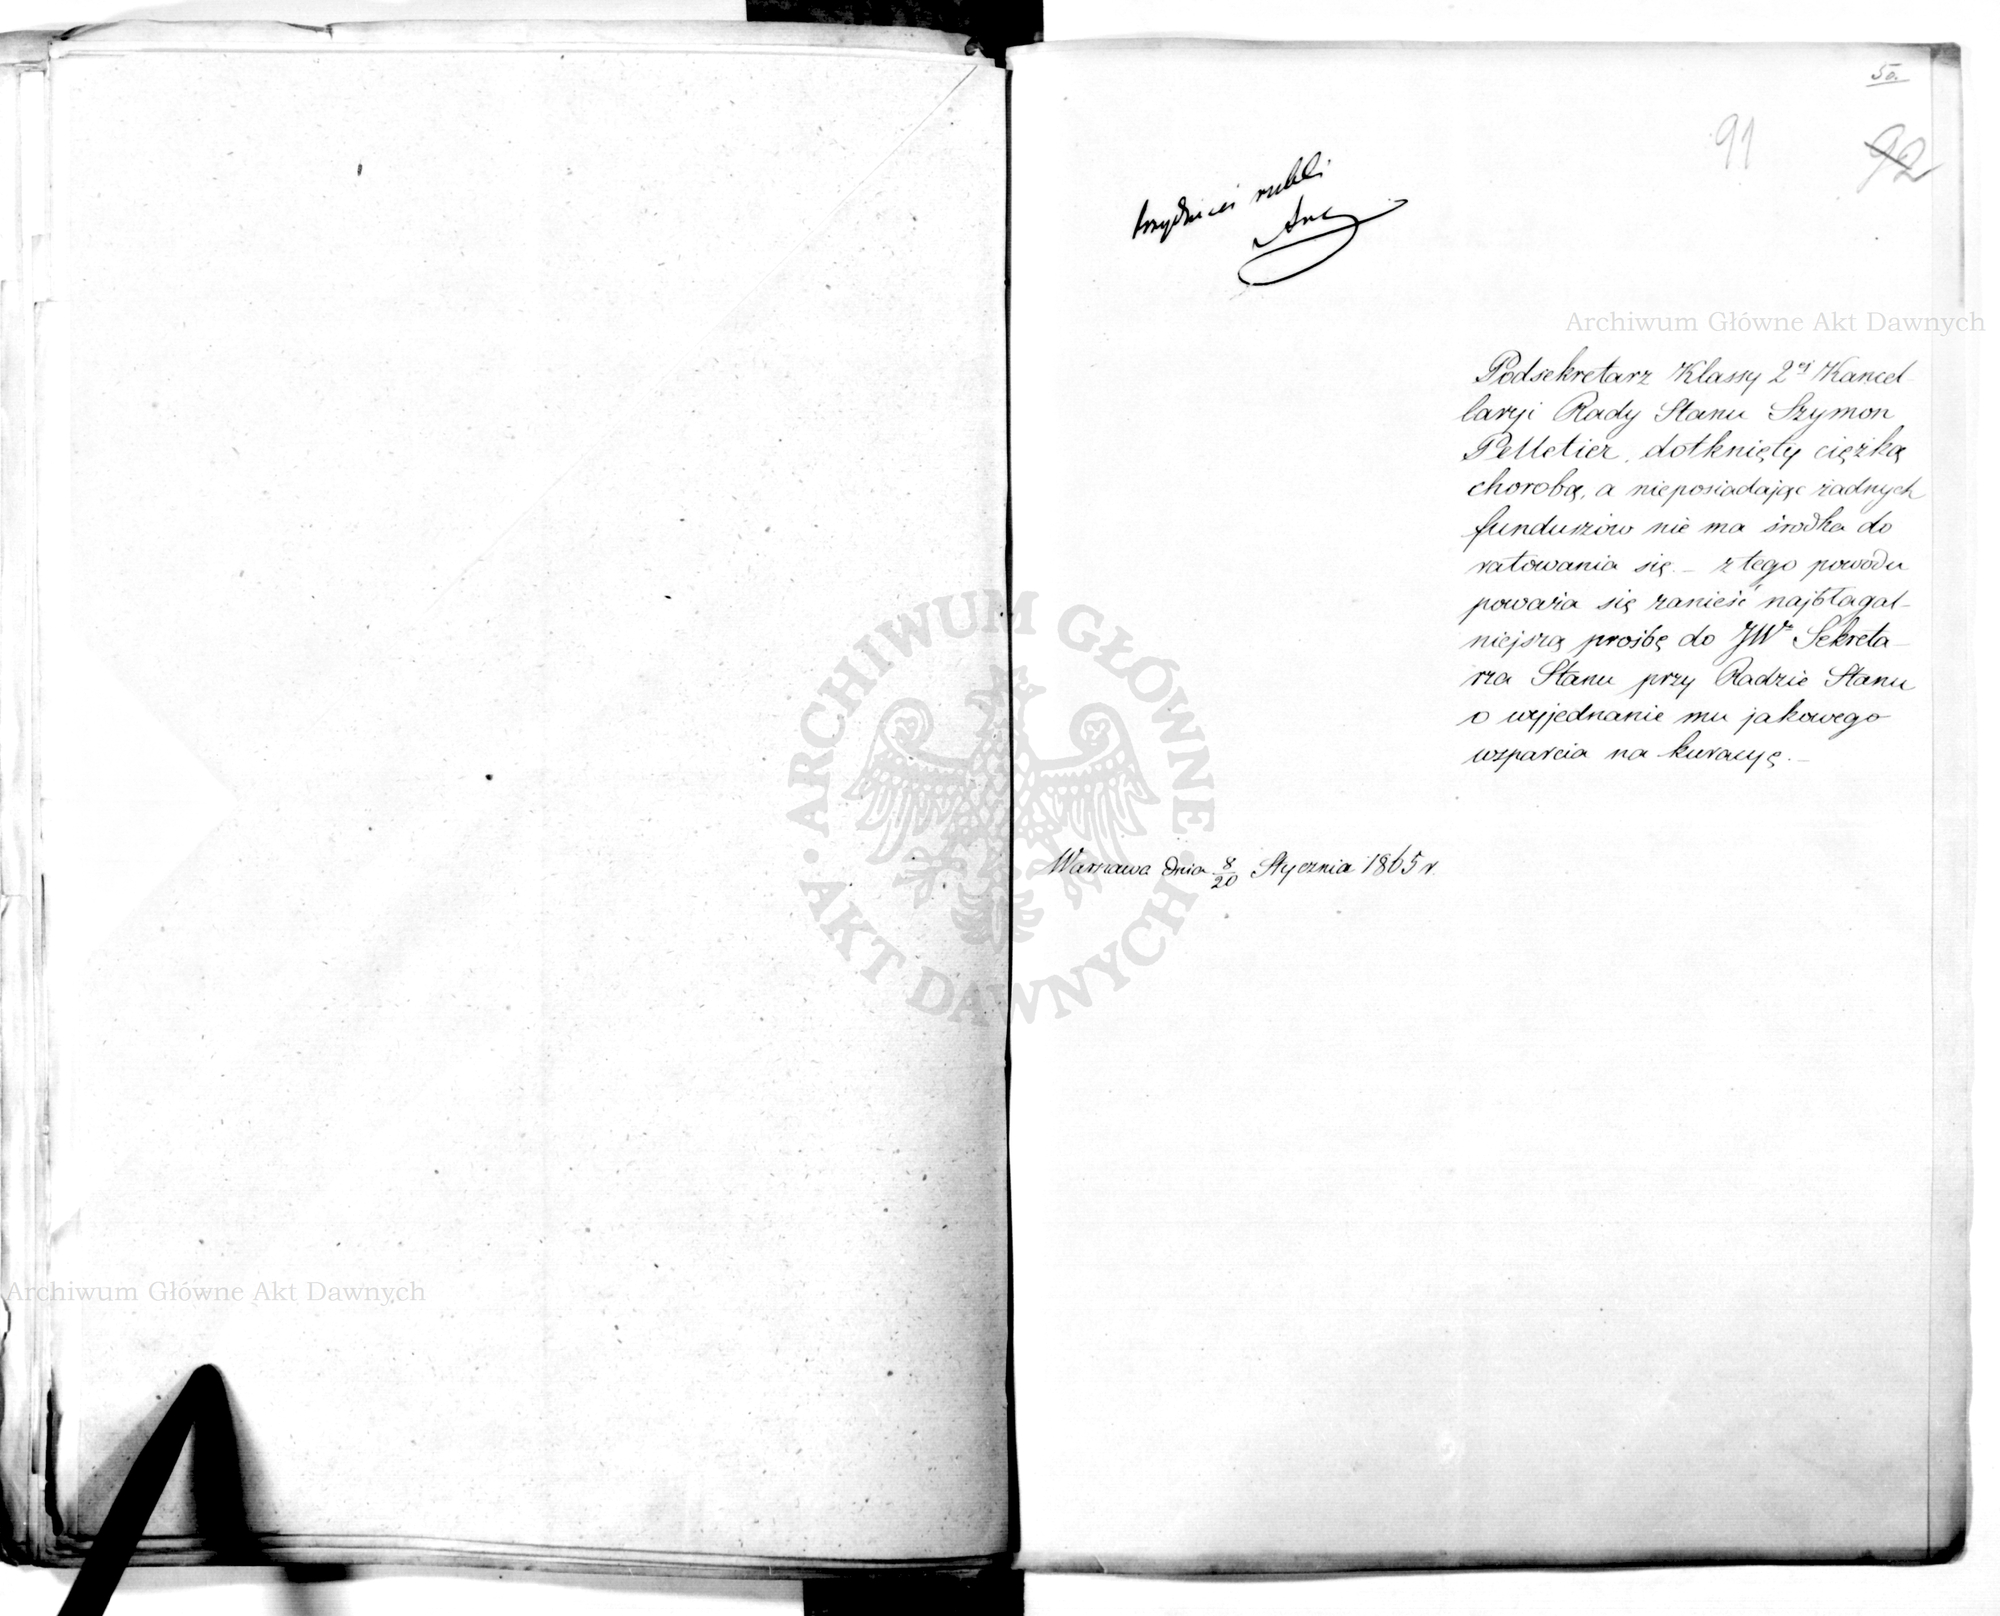 50.
91
92
trzydzieści rubli
Archiwum Główne Akt Dawnych
Podsekretarz Klassy 2ej Kancel-
laryi Rady Stanu Szymon
Pelletier, dotknięty ciężką
chorobą, a nieposiadając żadnych
funduszów nie ma środka do
ratowania się. – z tego powodu
poważa się zanieść najbłagal-
niejszą prośbę do JWo Sekreta-
rza Stanu przy Radzie Stanu
o wyjednanie mu jakowego
wsparcia na kuracyę. –
Warszawa dnia 8/20 Stycznia 1865 r.
ARCHIWUM GŁÓWNE · AKT DAWNYCH ·
Archiwum Główne Akt Dawnych